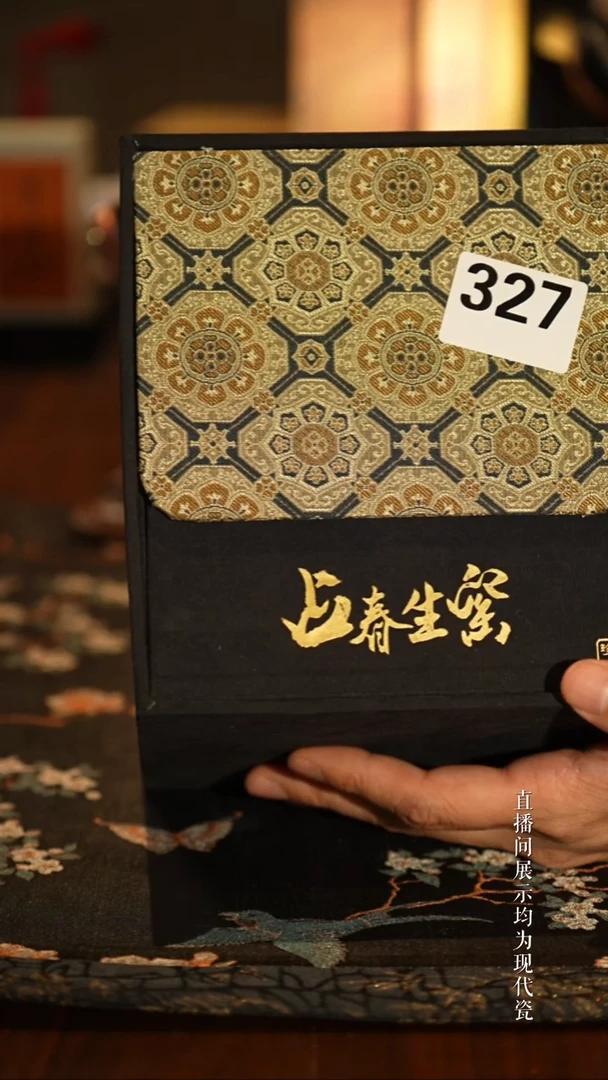 327
长春生窑
直播间展示均为现代瓷